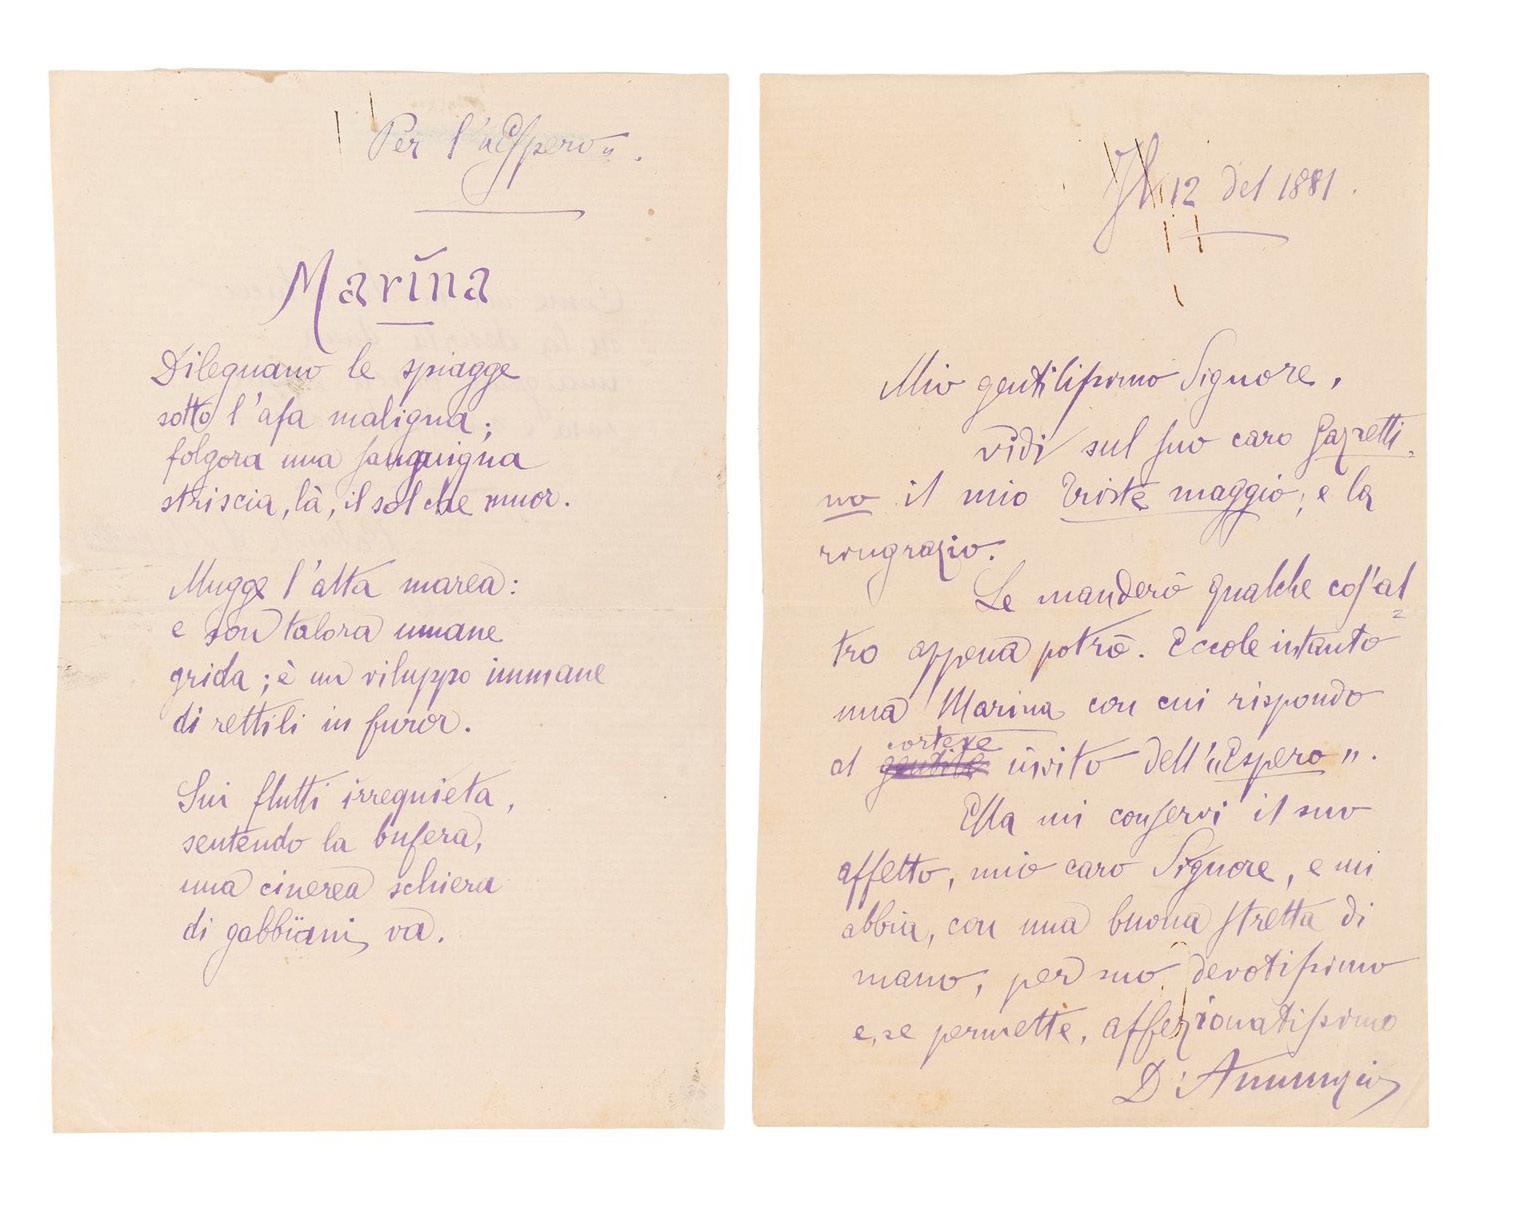 Per l'„Espero„.
Marina
Dileguano le spiagge
sotto l'afa maligna;
folgora una sanguigna
striscia, là, il sol che muor.
Mugge l'alta marea:
e son talora umane
grida; è un viluppo immane
di rettili in furor.
Sui flutti irrequieta,
sentendo la bufera,
una cinerea schiera
di gabbïani va.
Il 12 del 1881.
Mio gentilissimo Signore,
vidi sul suo caro Gazzetti-
no il mio Triste maggio; e la
ringrazio.
Le manderò qualche cos'al=
tro appena potrò. Eccole intanto
una Marina con cui rispondo
cortese
al gentile invito dell'„Espero„.
Ella mi conservi il suo
affetto, mio caro Signore, e mi
abbia, con una buona stretta di
mano, per suo devotissimo
e, se permette, affezionatissimo
D'Annunzio